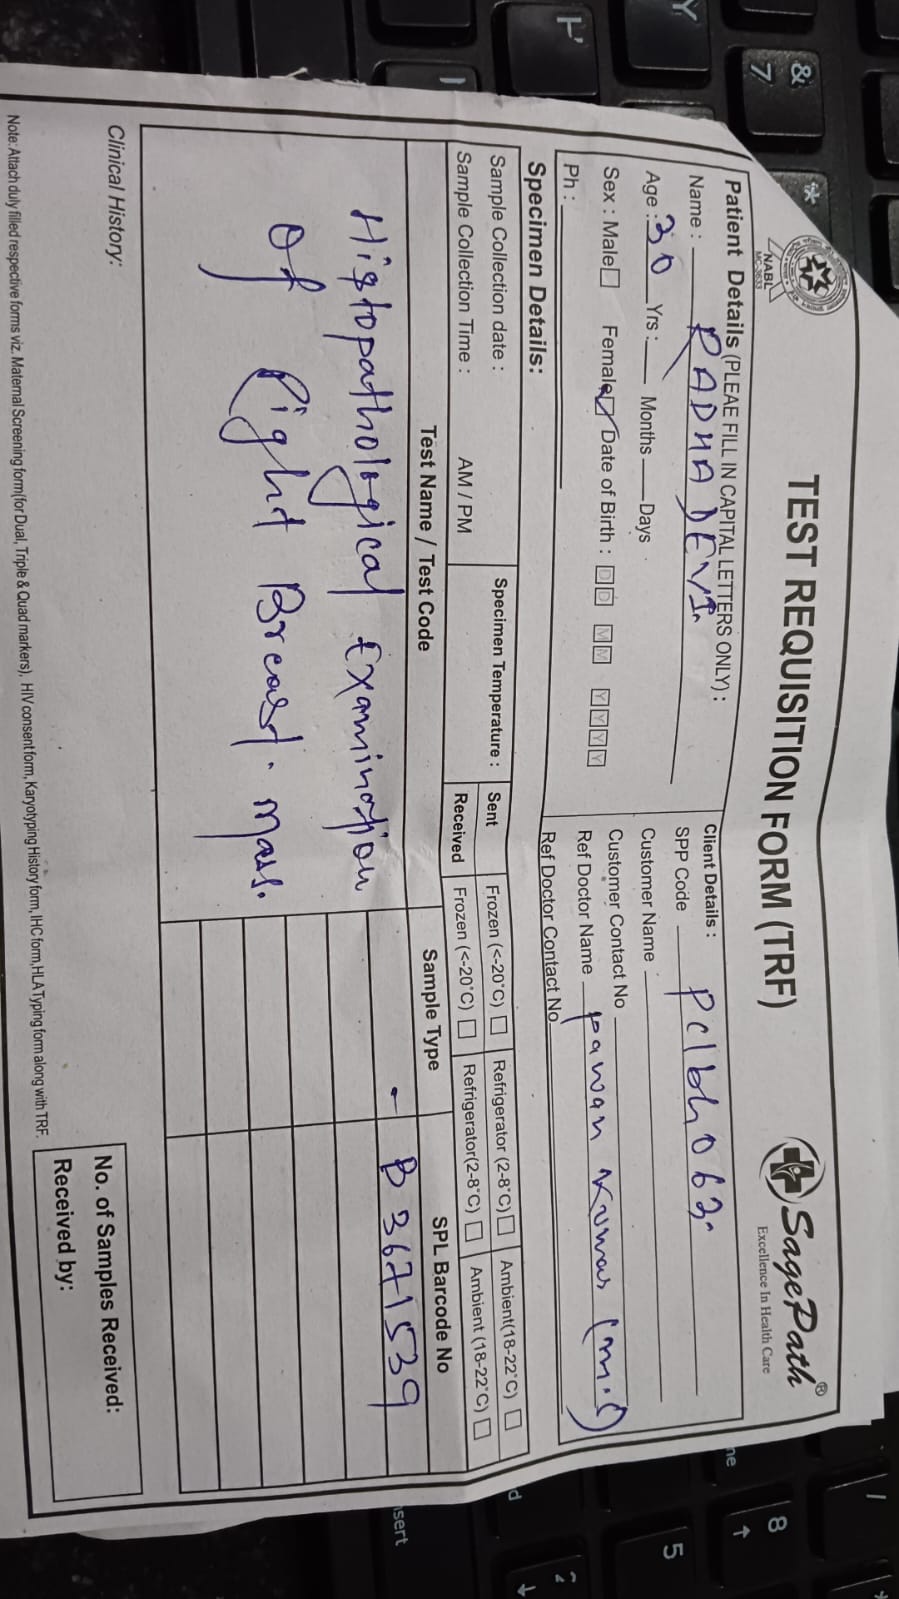 TEST REQUISITION FORM (TRF)
NABL
MC-3633
SagePath®
Excellence In Health Care
Patient Details (PLEAE FILL IN CAPITAL LETTERS ONLY) :
Name : RADHA DEVI.
Age : 30 Yrs : Months Days
Sex : Male Female Date of Birth : DD MM YYYY
Ph :
Client Details :
SPP Code Pclbh063.
Customer Name
Customer Contact No
Ref Doctor Name Pawan Kumar
Ref Doctor Contact No
Specimen Details:
Sample Collection date :
Sample Collection Time : AM / PM
Specimen Temperature :
Sent Frozen (<-20°C) Refrigerator (2-8°C) Ambient(18-22°C)
Received Frozen (<-20°C) Refrigerator(2-8°C) Ambient (18-22°C)
Test Name / Test Code Sample Type SPL Barcode No
Histopathological Examination - B3671539
Of Right Breast. mass.
Clinical History:
No. of Samples Received:
Received by:
Note: Attach duly filled respective forms viz. Maternal Screening form(for Dual, Triple & Quad markers), HIV consent form, Karyotyping History form, IHC form, HLA Typing form along with TRF.
& 7
*
Y
8
5
2
d